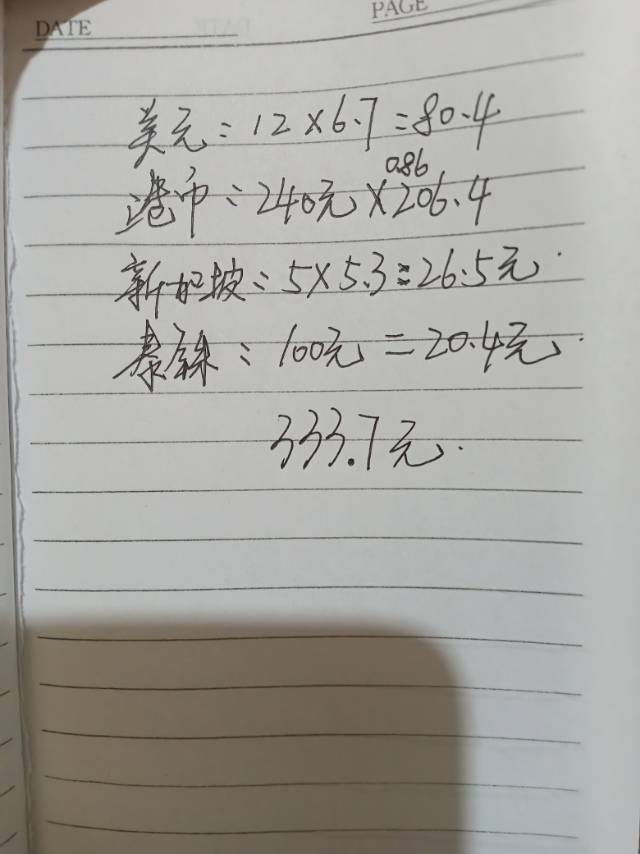 DATE
PAGE
美元：12×6.7=80.4
0.86
港币：240元×206.4
新加坡：5×5.3=26.5元.
泰铢：100元=20.4元.
333.7元.